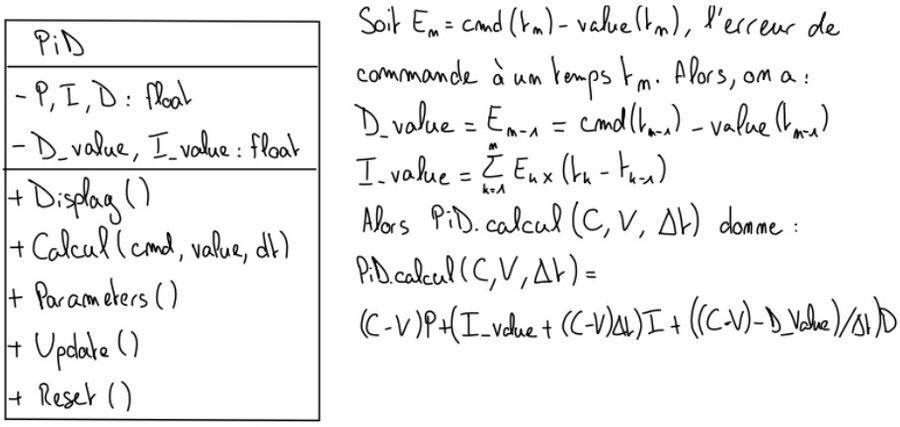 PiD
- P, I, D : float
- D_value, I_value : float
+ Display()
+ Calcul(cmd, value, dt)
+ Parameters()
+ Update()
+ Reset()
Soit Eₙ = cmd(tₙ) - value(tₙ), l'erreur de
commande à un temps tₙ. Alors, on a :
D_value = Eₙ₋₁ = cmd(tₙ₋₁) - value(tₙ₋₁)
I_value = Σₖ₌₁ⁿ Eₖ × (tₖ - tₖ₋₁)
Alors PiD.calcul(C, V, Δt) donne :
PiD.calcul(C, V, Δt) =
(C-V)P+(I_value + (C-V)Δt)I + ((C-V)-D_Value)/Δt)D